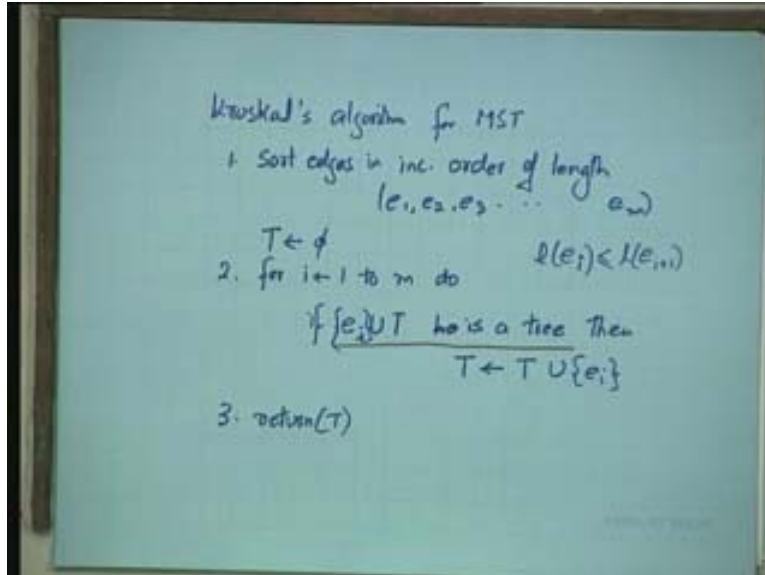 Kruskal's algorithm for MST
1. Sort edges in inc. order of length
(e₁, e₂, e₃ . . . eₘ)
T ← φ
l(eᵢ) < l(eᵢ₊₁)
2. for i ← 1 to m do
if {eᵢ} ∪ T is a tree then
T ← T ∪ {eᵢ}
3. return(T)